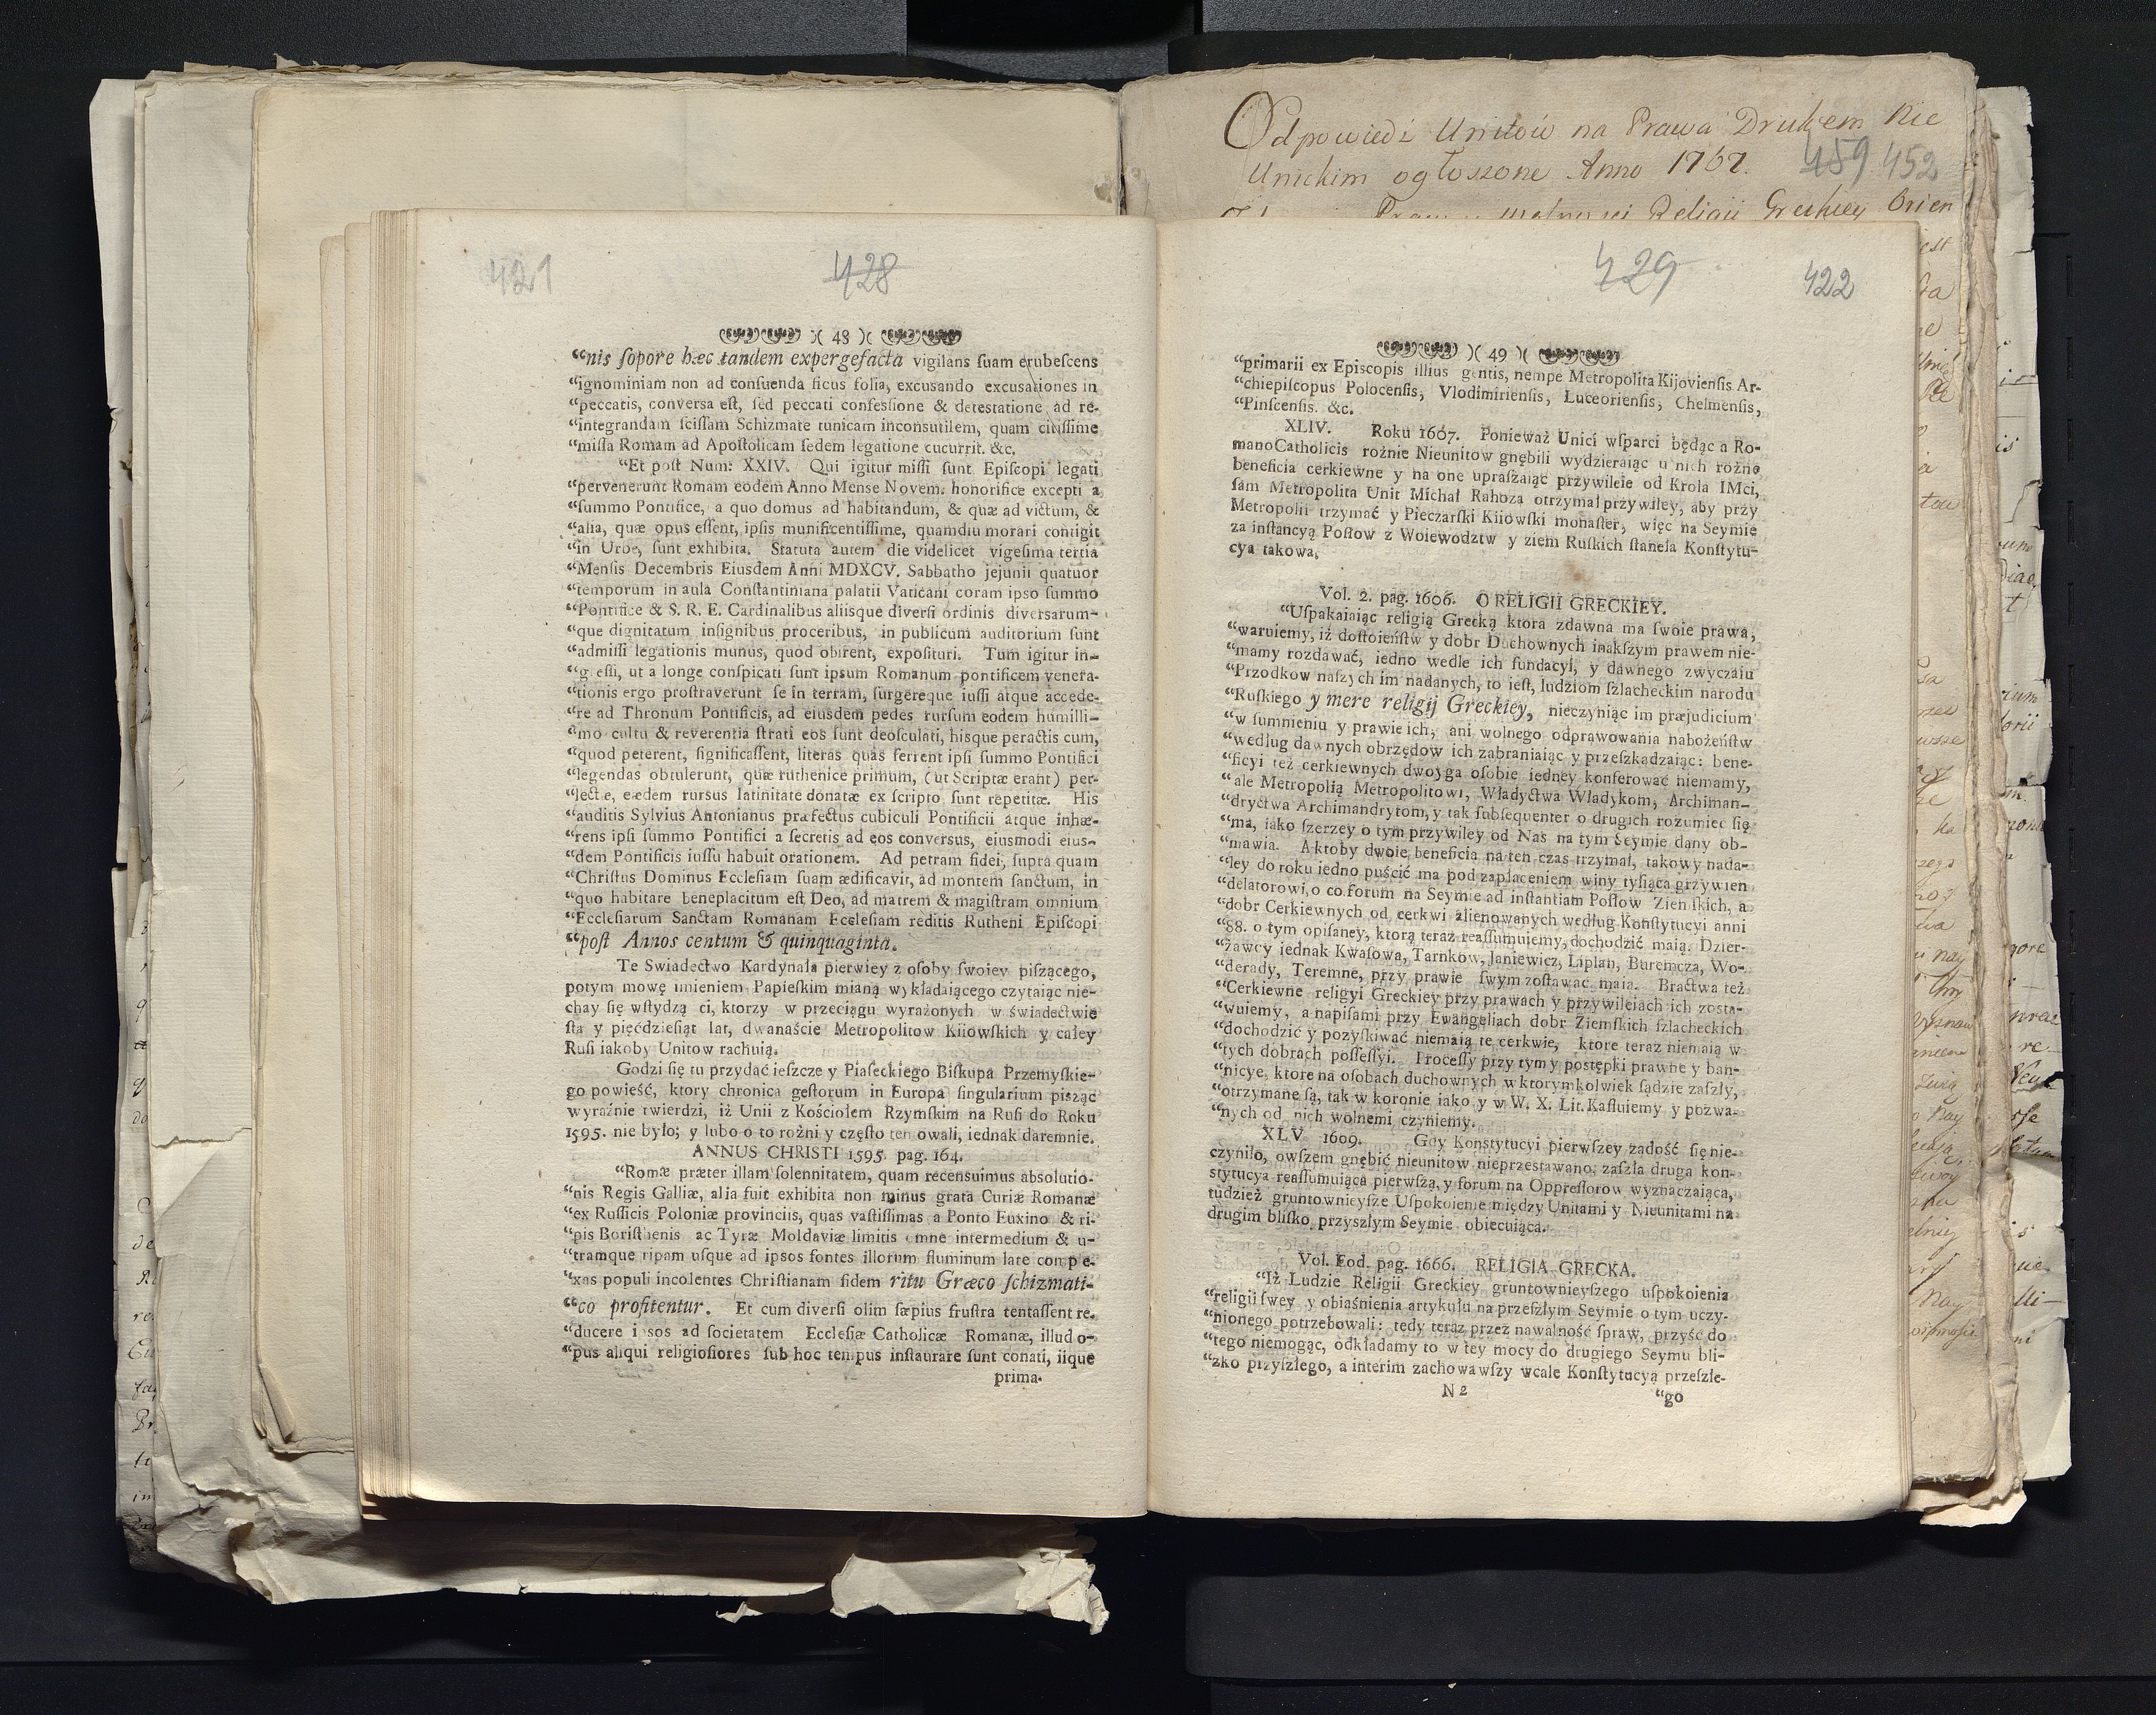 421 428
)( 48 )(
“nis ſopore hæc tandem expergefacta vigilans ſuam erubeſcens
“ignominiam non ad conſuenda ficus folia, excusando excusationes in
“peccatis, conversa eſt, ſed peccati confeſſione & deteſtatione ad re-
“integrandam ſciſſam Schizmate tunicam inconsutilem, quam citiſſime
“miſſa Romam ad Apoſtolicam ſedem legatione cucurrit. &c.
“Et poſt Num: XXIV. Qui igitur miſſi ſunt Epiſcopi legati
“pervenerunt Romam eodem Anno Mense Novem. honorifice excepti a
“ſummo Pontifice, a quo domus ad habitandum, & quæ ad victum, &
“alia, quæ opus eſſent, ipſis munificentiſſime, quamdiu morari contigit
“in Urbe, ſunt exhibita. Statuta autem die videlicet vigeſima tertia
“Menſis Decembris Eiusdem Anni MDXCV. Sabbatho jejunii quatuor
“temporum in aula Conſtantiniana palatii Vaticani coram ipso ſummo
“Pontifice & S. R. E. Cardinalibus aliisque diverſi ordinis diversarum-
“que dignitatum inſignibus proceribus, in publicum auditorium ſunt
“admiſſi legationis munus, quod obirent, expoſituri. Tum igitur in-
“greſſi, ut a longe conſpicati ſunt ipsum Romanum pontificem venera-
“tionis ergo proſtraverunt ſe in terram, ſurgereque iuſſi atque accede-
“re ad Thronum Pontificis, ad eiusdem pedes rurſum eodem humilli-
“mo cultu & reverentia ſtrati eos ſunt deoſculati, hisque peractis cum,
“quod peterent, ſignificaſſent, literas quas ferrent ipſi ſummo Pontifici
“legendas obtulerunt, quæ ruthenice primum, (ut Scriptæ erant) per-
“lectæ, eædem rursus latinitate donatæ ex ſcripto ſunt repetitæ. His
“auditis Sylvius Antonianus præfectus cubiculi Pontificii atque inhæ-
“rens ipſi ſummo Pontifici a ſecretis ad eos conversus, eiusmodi eius-
“dem Pontificis iuſſu habuit orationem. Ad petram fidei, ſupra quam
“Chriſtus Dominus Eccleſiam ſuam ædificavit, ad montem ſanctum, in
“quo habitare beneplacitum eſt Deo, ad matrem & magiſtram omnium
“Eccleſiarum Sanctam Romanam Eccleſiam reditis Rutheni Epiſcopi
“poſt Annos centum & quinquaginta.
Te Swiadectwo Kardynała pierwiey z oſoby ſwoiey piſzącego,
potym mowę imieniem Papieſkim mianą wykładaiącego czytaiąc nie-
chay się wſtydzą ci, ktorzy w przeciągu wyrażonych w świadectwie
ſta y pięćdzieſiąt lat, dwanaście Metropolitow Kiiowſkich y całey
Ruſi iakoby Unitow rachuią.
Godzi ſię tu przydać ieſzcze y Piaſeckiego Biſkupa Przemyſkie-
go powieść, ktory chronica geſtorum in Europa ſingularium pisząc
wyraźnie twierdzi, iż Unii z Kościołem Rzymſkim na Ruſi do Roku
1595. nie było; y lubo o to rożni y częſto tentowali, iednak daremnie.
ANNUS CHRISTI 1595. pag. 164.
“Romæ præter illam ſolennitatem, quam recensuimus absolutio-
“nis Regis Galliæ, alia fuit exhibita non minus grata Curiæ Romanæ
“ex Ruſſicis Poloniæ provinciis, quas vaſtiſſimas a Ponto Euxino & ri-
“pis Boriſthenis ac Tyræ Moldaviæ limitis omne intermedium & u-
“tramque ripam uſque ad ipsos fontes illorum fluminum late comple-
“xas populi incolentes Chriſtianam fidem ritu Græco ſchizmati-
“co profitentur. Et cum diverſi olim ſæpius fruſtra tentaſſent re-
“ducere ipsos ad ſocietatem Eccleſiæ Catholicæ Romanæ, illud o-
“pus aliqui religioſiores ſub hoc tempus inſtaurare ſunt conati, iique
prima-
Odpowiedź Unitów na Prawa Drukem Nie
Unickim ogłoszone Anno 1767. 459 452
Religii Greckiey Orien
429 422
)( 49 )(
“primarii ex Episcopis illius gentis, nempe Metropolita Kijovienſis Ar-
“chiepiſcopus Polocenſis, Vlodimirienſis, Luceorienſis, Chelmenſis,
“Pinſcenſis. &c.
XLIV. Roku 1607. Ponieważ Unici wſparci będąc a Ro-
manoCatholicis rożnie Nieunitow gnębili wydzieraiąc u nich rożne
beneficia cerkiewne y na one upraſzaiąc przywileie od Krola IMci,
ſam Metropolita Unit Michał Rahoza otrzymał przywiley, aby przy
Metropolii trzymać y Pieczarſki Kiiowſki monaſter, więc na Seymie
za inſtancyą Poſłow z Woiewodztw y ziem Ruſkich ſtaneła Konſtytu-
cya takowa,
Vol. 2. pag. 1606. O RELIGII GRECKIEY.
“Uſpakaiaiąc religią Grecką ktora zdawna ma ſwoie prawa,
“waruiemy, iż doſtoieńſtw y dobr Duchownych inakſzym prawem nie-
“mamy rozdawać, iedno wedle ich fundacyi, y dawnego zwyczaiu
“Przodkow naſzych im nadanych, to ieſt, ludziom ſzlacheckim narodu
“Ruſkiego y mere religij Greckiey, nieczyniąc im præjudicium
“w ſumnieniu y prawie ich, ani wolnego odprawowania nabożeńſtw
“według dawnych obrzędow ich zabraniaiąc y przeſzkadzaiąc: bene-
“ficyi też cerkiewnych dwoyga oſobie iedney konferować niemamy,
“ale Metropolią Metropolitowi, Władyctwa Władykom, Archiman-
“dryctwa Archimandrytom, y tak ſubſequenter o drugich rozumiec ſię
“ma, iako ſzerzey o tym przywiley od Nas na tym Seymie dany ob-
“mawia. A ktoby dwoie beneficia na ten czas trzymał, takowy nada-
“ley do roku iedno puścić ma pod zapłaceniem winy tyſiąca grzywien
“delatorowi, o co forum na Seymie ad inſtantiam Poſłow Ziemſkich, a
“dobr Cerkiewnych od cerkwi alienowanych według Konſtytucyi anni
“88. o tym opiſaney, ktorą teraz reaſſumuiemy, dochodzić maią. Dzier-
“żawcy iednak Kwaſowa, Tarnkow, Janiewicz, Liplan, Buremcza, Wo-
“derady, Teremne, przy prawie ſwym zoſtawać maia. Bractwa też
“Cerkiewne religyi Greckiey przy prawach y przywileiach ich zoſta-
“wuiemy, a napiſami przy Ewangeliach dobr Ziemſkich ſzlacheckich
“dochodzić y pozyſkiwać niemaią te cerkwie, ktore teraz niemaią w
“tych dobrach poſſeſſyi. Proceſſy przy tym y poſtępki prawne y ban-
“nicye, ktore na oſobach duchownych w ktorymkolwiek ſądzie zaſzły,
“otrzymane są, tak w koronie iako y w W. X. Lit. Kaſſuiemy y pozwa-
“nych od nich wolnemi czyniemy.
XLV 1609. Gdy Konſtytucyi pierwſzey zadość ſię nie-
czyniło, owſzem gnębić nieunitow nieprzestawano, zaſzła druga kon-
ſtytucya reaſſumuiąca pierwſzą, y forum na Oppreſſorow wyznaczaiąca,
tudzież gruntownieyſze Uſpokoienie między Unitami y Nieunitami na
drugim bliſko przyszłym Seymie obiecuiąca.
Vol. Eod. pag. 1666. RELIGIA GRECKA.
“Iż Ludzie Religii Greckiey gruntownieyſzego uſpokoienia
“religii ſwey y obiaśnienia artykułu na przeſzłym Seymie o tym uczy-
“nionego potrzebowali: tedy teraz przez nawalność ſpraw, przyść do
“tego niemogąc, odkładamy to w tey mocy do drugiego Seymu bli-
“zko przyſzłego, a interim zachowawſzy wcale Konſtytucyą przeſzłe-
N 2 “go